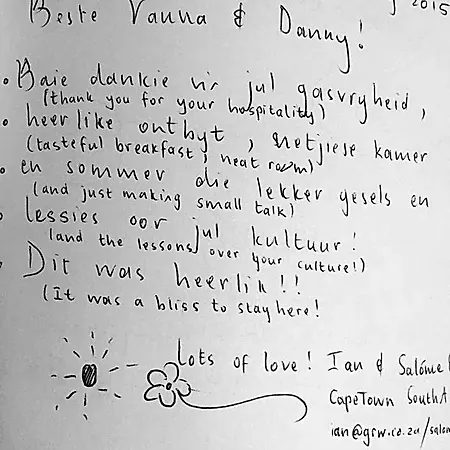 2015
Beste Vanna & Danny!
Baie dankie vir jul gasvryheid,
(thank you for your hospitality)
heerlike ontbyt, netjiese kamer
(tasteful breakfast, neat room)
en sommer die lekker gesels en
(and just making small talk)
lessies oor jul kultuur!
(and the lessons over your culture!)
Dit was heerlik!!
(It was a bliss to stay here!
Lots of love! Ian & Salóme
CapeTown South A
ian@grw.co.za/salom